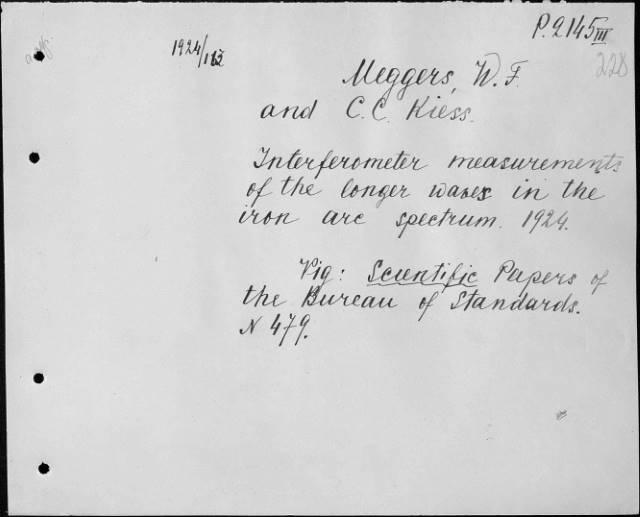 P.2145III
1924/
228
Meggers, W. F.
and C. C. Kiess.
Interferometer measurements
of the longer waves in the
iron arc spectrum. 1924.
Vig: Scientific Papers of
the Bureau of Standards.
N 479.